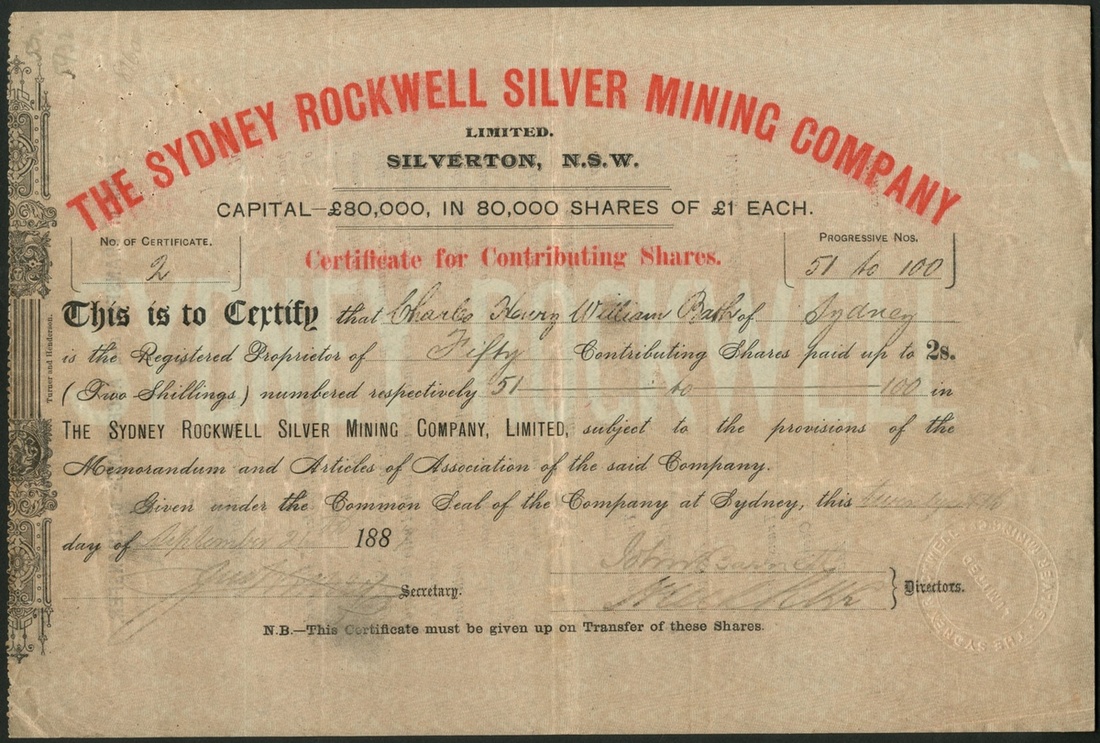 THE SYDNEY ROCKWELL SILVER MINING COMPANY
LIMITED.
SILVERTON, N.S.W.
CAPITAL—£80,000, IN 80,000 SHARES OF £1 EACH.
No. of Certificate.
2
Certificate for Contributing Shares.
Progressive Nos.
51 to 100
SYDNEY ROCKWELL
This is to Certify that Charles Henry William of Sydney
is the Registered Proprietor of Fifty Contributing Shares paid up to 2s.
(Two Shillings) numbered respectively 51 to 100 in
The Sydney Rockwell Silver Mining Company, Limited, subject to the provisions of the
Memorandum and Articles of Association of the said Company.
Given under the Common Seal of the Company at Sydney, this
day of September 188
Secretary.
Directors.
N.B.—This Certificate must be given up on Transfer of these Shares.
Turner and Henderson.
THE SYDNEY ROCKWELL SILVER MINING CO
LIMITED